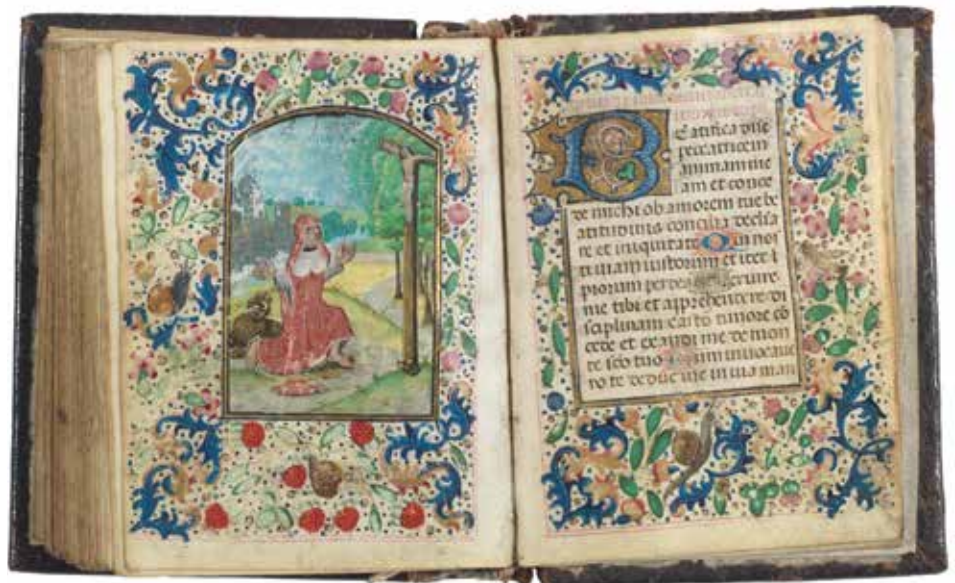 BEatifica dñe
peccatricem
animam me
am et conce
de michi ob amorem tue be
atitudinis declīa
re et iniquitatē Qui nos
ti uiam iustorum et iter ī
piorum seruire
me tibi et apprehendere di
sciplinam timore cō
cede et exaudi me de mon
te sc̄o tuo Cum inuocaue
ro te deduc me in uia man